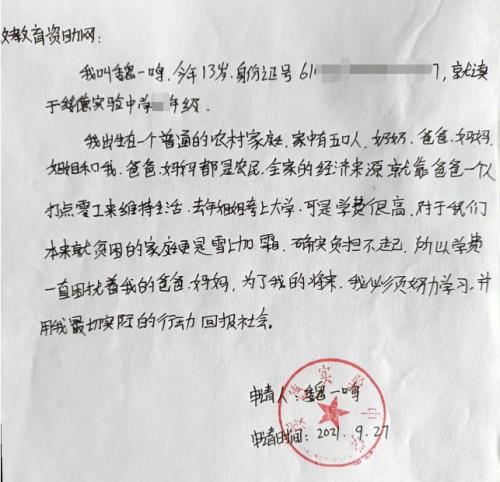 救教育资助网：
我叫魏一鸣，今年13岁，身份证号61 7，就读
于绥德实验中学 年级。
我出生在一个普通的农村家庭，家中有五口人，奶奶、爸爸、妈妈、
姐姐和我。爸爸、妈妈都是农民，全家的经济来源就靠爸爸一个人
打点零工来维持生活，去年姐姐考上大学，可是学费很高，对于我们
本来就贫困的家庭更是雪上加霜，确实负担不起，所以学费
一直困扰着我的爸爸、妈妈，为了我的将来，我必须努力学习，并
用我最切实际的行动回报社会。
申请人：魏一鸣
申请时间：2021.9.27
绥德实验中学